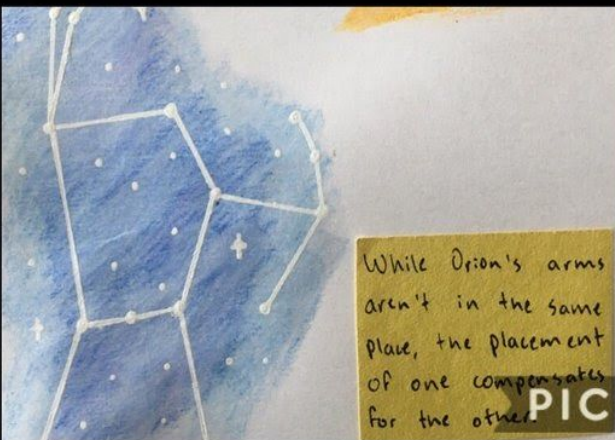 While Orion's arms
aren't in the same
place, the placement
of one compensates
for the other.
PIC